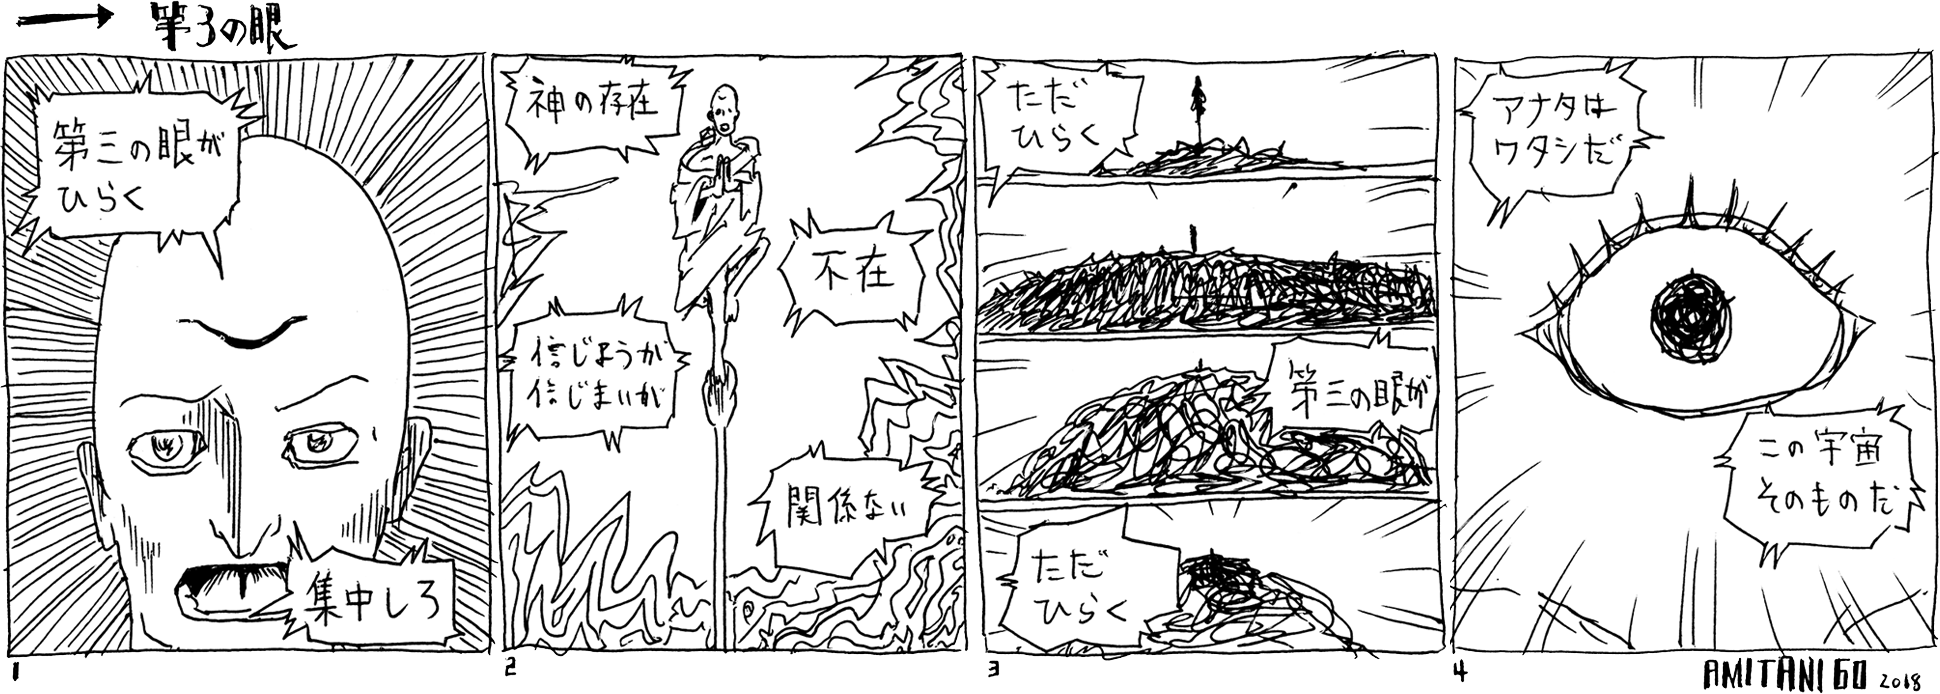 第3の眼
第三の眼が
ひらく
集中しろ
1
神の存在
不在
信じようが
信じまいが
関係ない
2
ただ
ひらく
第三の眼が
ただ
ひらく
3
アナタは
ワタシだ
この宇宙
そのものだ
4
AMITANI GO 2018